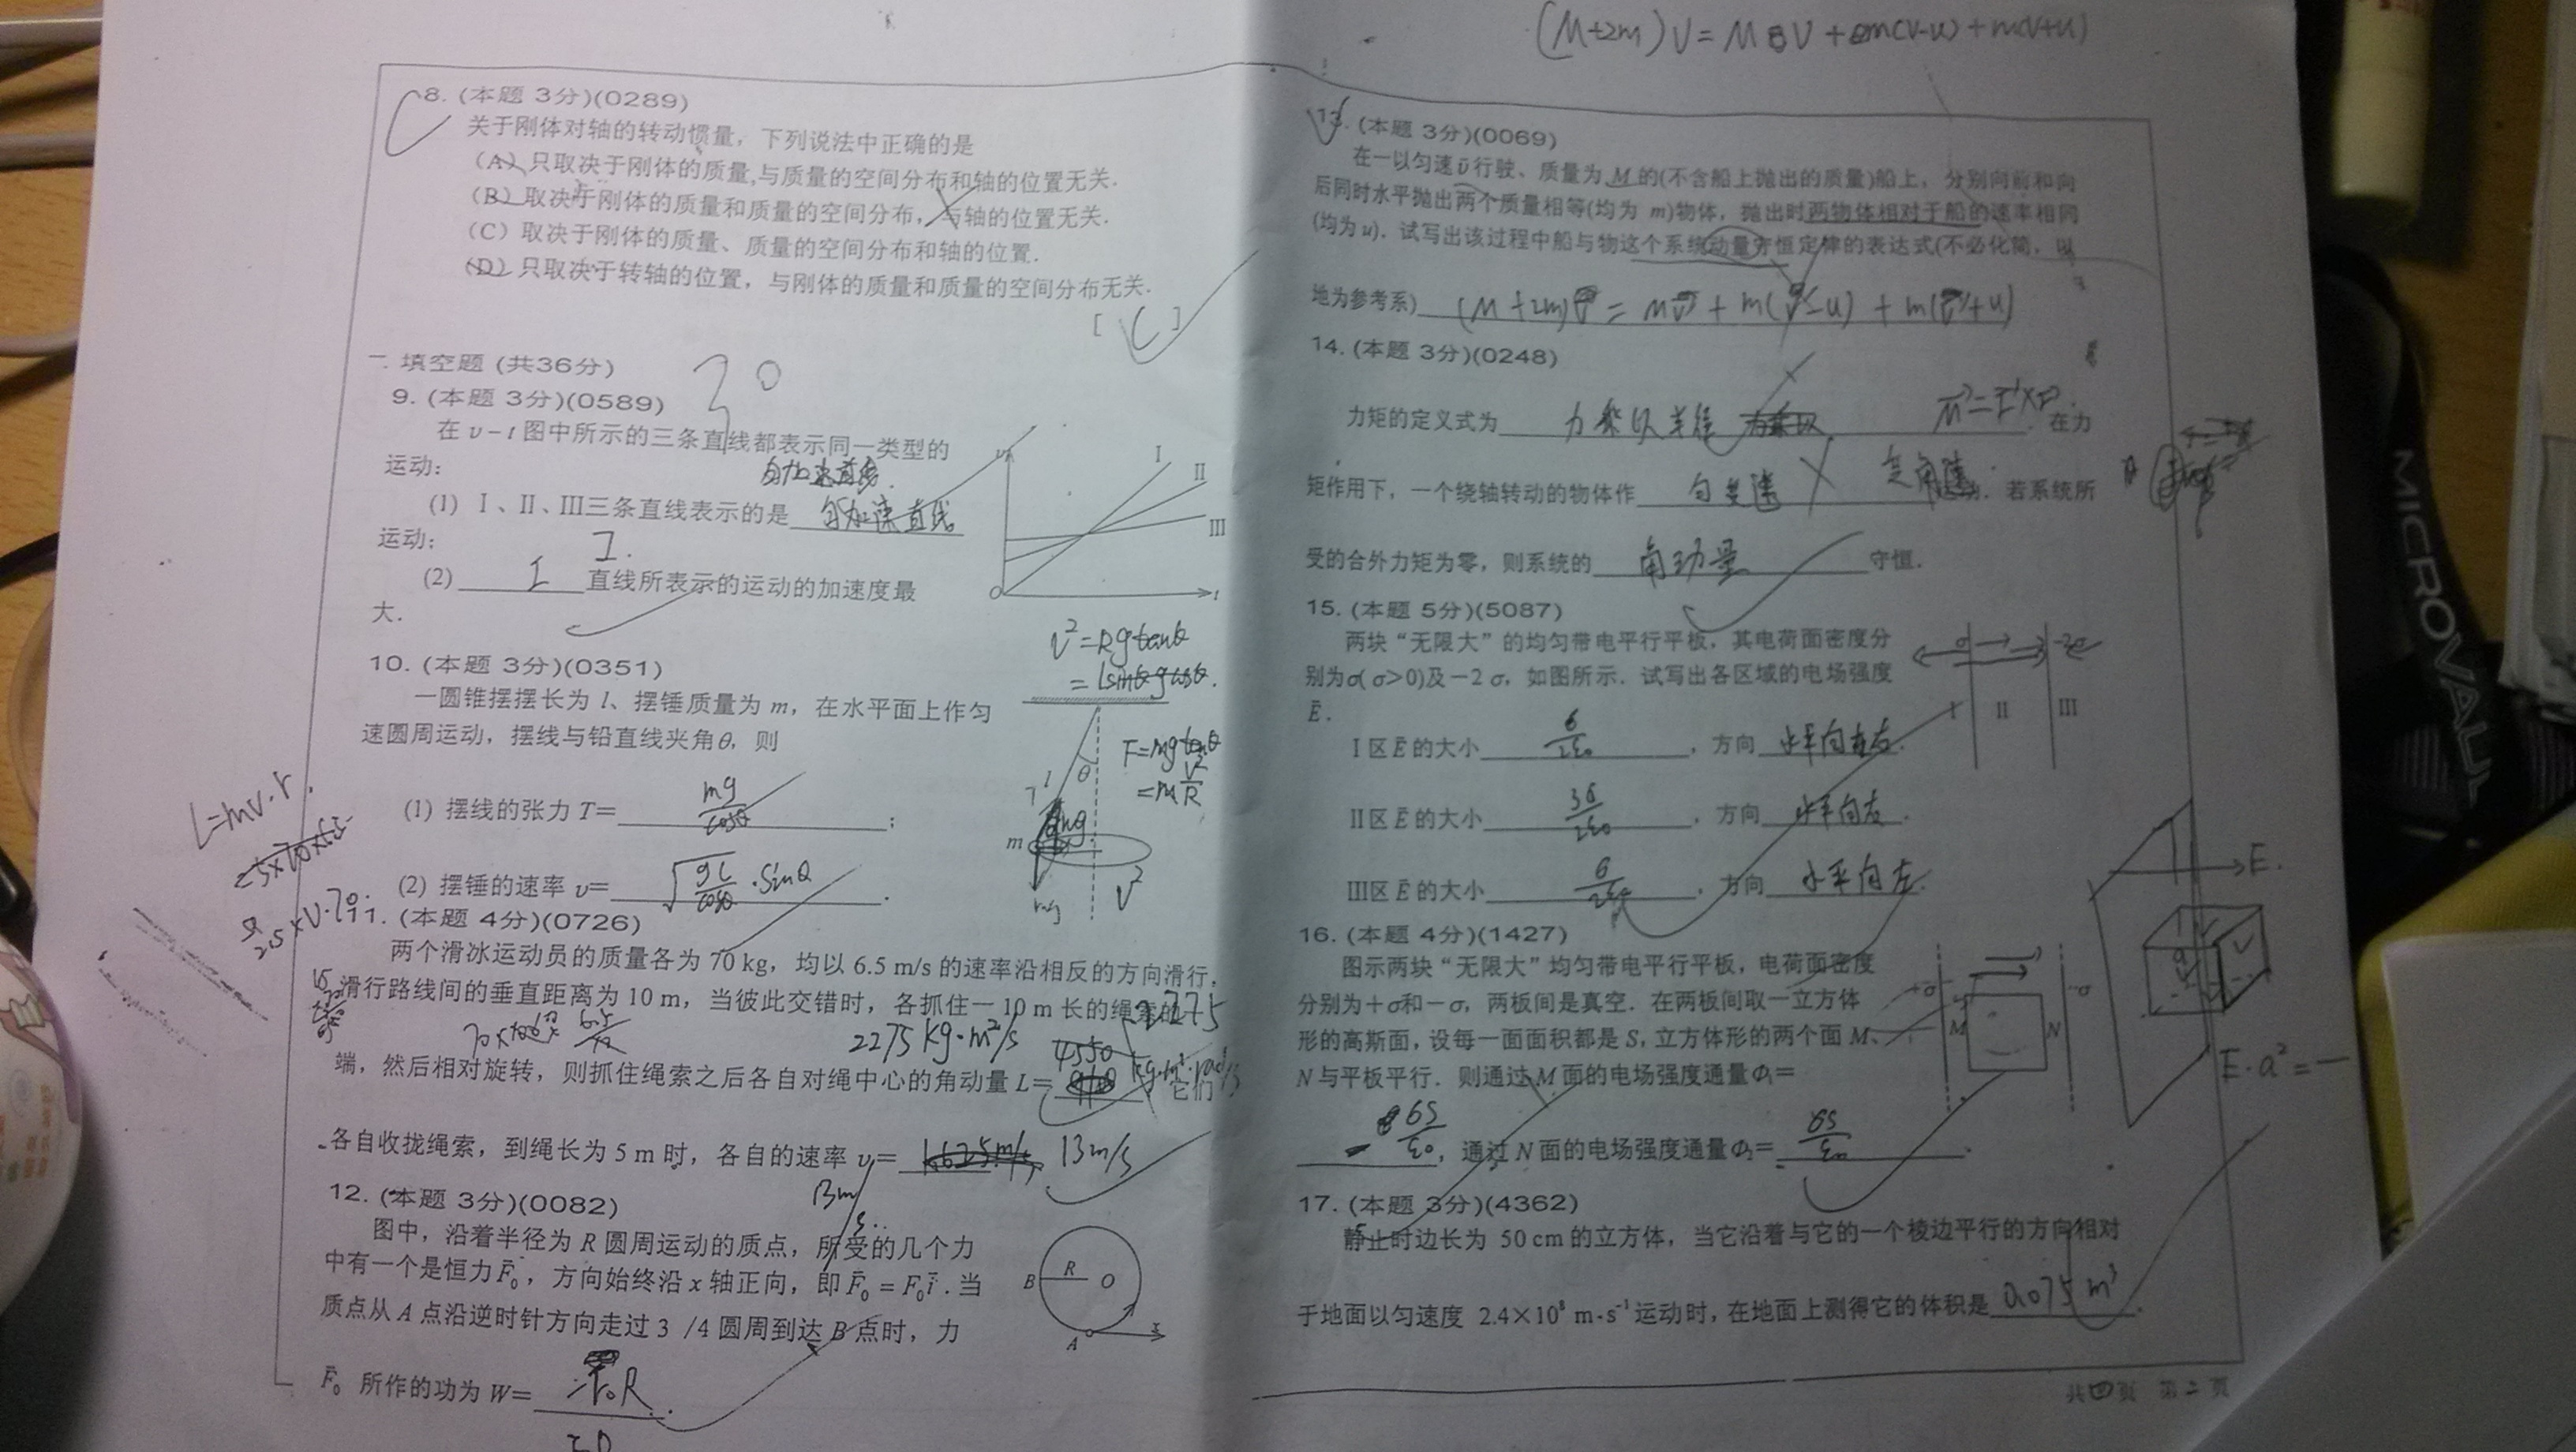 8. (本题 3分)(0289)
关于刚体对轴的转动惯量，下列说法中正确的是
(A) 只取决于刚体的质量,与质量的空间分布和轴的位置无关.
(B) 取决于刚体的质量和质量的空间分布，与轴的位置无关.
(C) 取决于刚体的质量、质量的空间分布和轴的位置.
(D) 只取决于转轴的位置，与刚体的质量和质量的空间分布无关.
[ C ]
填空题 (共36分)
30
9. (本题 3分)(0589)
在 υ－t 图中所示的三条直线都表示同一类型的
运动:
匀加速直线.
(1) Ⅰ、Ⅱ、Ⅲ三条直线表示的是 匀加速直线
运动:
I.
(2) I 直线所表示的运动的加速度最
大.
Ⅰ
Ⅱ
Ⅲ
O
t
10. (本题 3分)(0351)
一圆锥摆摆长为 l、摆锤质量为 m，在水平面上作匀
速圆周运动，摆线与铅直线夹角θ，则
(1) 摆线的张力 T= mg/cosθ ;
(2) 摆锤的速率 υ= √(gl/cosθ)·sinθ .
V²=Rgtanθ
F=mgtanθ
=mV²/R
l
θ
m
mg
L=mv·r.
11. (本题 4分)(0726)
两个滑冰运动员的质量各为 70 kg，均以 6.5 m/s 的速率沿相反的方向滑行，
滑行路线间的垂直距离为 10 m，当彼此交错时，各抓住一 10 m 长的绳索的
2275
2275 kg·m²/s
端，然后相对旋转，则抓住绳索之后各自对绳中心的角动量 L= ，它们
各自收拢绳索，到绳长为 5 m 时，各自的速率 υ= 13m/s
13m/s
12. (本题 3分)(0082)
图中，沿着半径为 R 圆周运动的质点，所受的几个力
中有一个是恒力F⃗₀，方向始终沿 x 轴正向，即F⃗₀＝F₀i⃗. 当
质点从 A 点沿逆时针方向走过 3 /4 圆周到达 B 点时，力
F⃗₀ 所作的功为 W= F₀R .
B
R
O
A
x
(M+2m)V=MV+m(V-u)+m(V+u)
13. (本题 3分)(0069)
在一以匀速υ⃗行驶、质量为 M 的(不含船上抛出的质量)船上，分别向前和向
后同时水平抛出两个质量相等(均为 m)物体，抛出时两物体相对于船的速率相同
(均为 u). 试写出该过程中船与物这个系统动量守恒定律的表达式(不必化简，以
地为参考系)
14. (本题 3分)(0248)
力矩的定义式为 力乘以半径 M⃗=r⃗×F⃗. 在力
矩作用下，一个绕轴转动的物体作 匀变速 变角速 运动. 若系统所
受的合外力矩为零，则系统的 角动量 守恒.
15. (本题 5分)(5087)
两块“无限大”的均匀带电平行平板，其电荷面密度分
别为σ( σ>0)及－2 σ，如图所示. 试写出各区域的电场强度
E⃗.
Ⅰ区E⃗的大小 σ/2ε₀ ，方向 水平向右 .
Ⅱ区E⃗的大小 3σ/2ε₀ ，方向 水平向右 .
Ⅲ区E⃗的大小 σ/2ε₀ ，方向 水平向左 .
σ
-2σ
Ⅰ
Ⅱ
Ⅲ
16. (本题 4分)(1427)
图示两块“无限大”均匀带电平行平板，电荷面密度
分别为＋σ和－σ，两板间是真空. 在两板间取一立方体
形的高斯面，设每一面面积都是 S, 立方体形的两个面 M、
N 与平板平行. 则通过 M 面的电场强度通量Φ₁=
-σS/ε₀ ，通过 N 面的电场强度通量Φ₂= σS/ε₀ .
+σ
-σ
M
N
E.
E·a²=
17. (本题 3分)(4362)
静止时边长为 50 cm 的立方体，当它沿着与它的一个棱边平行的方向相对
于地面以匀速度 2.4×10⁸ m·s⁻¹ 运动时，在地面上测得它的体积是 0.075 m³ .
共四页 第二页
MICROVAULT